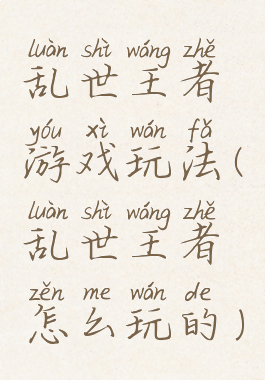 luàn shì wáng zhě
乱世王者
yóu xì wán fǎ
游戏玩法(
luàn shì wáng zhě
乱世王者
zěn me wán de
怎么玩的)